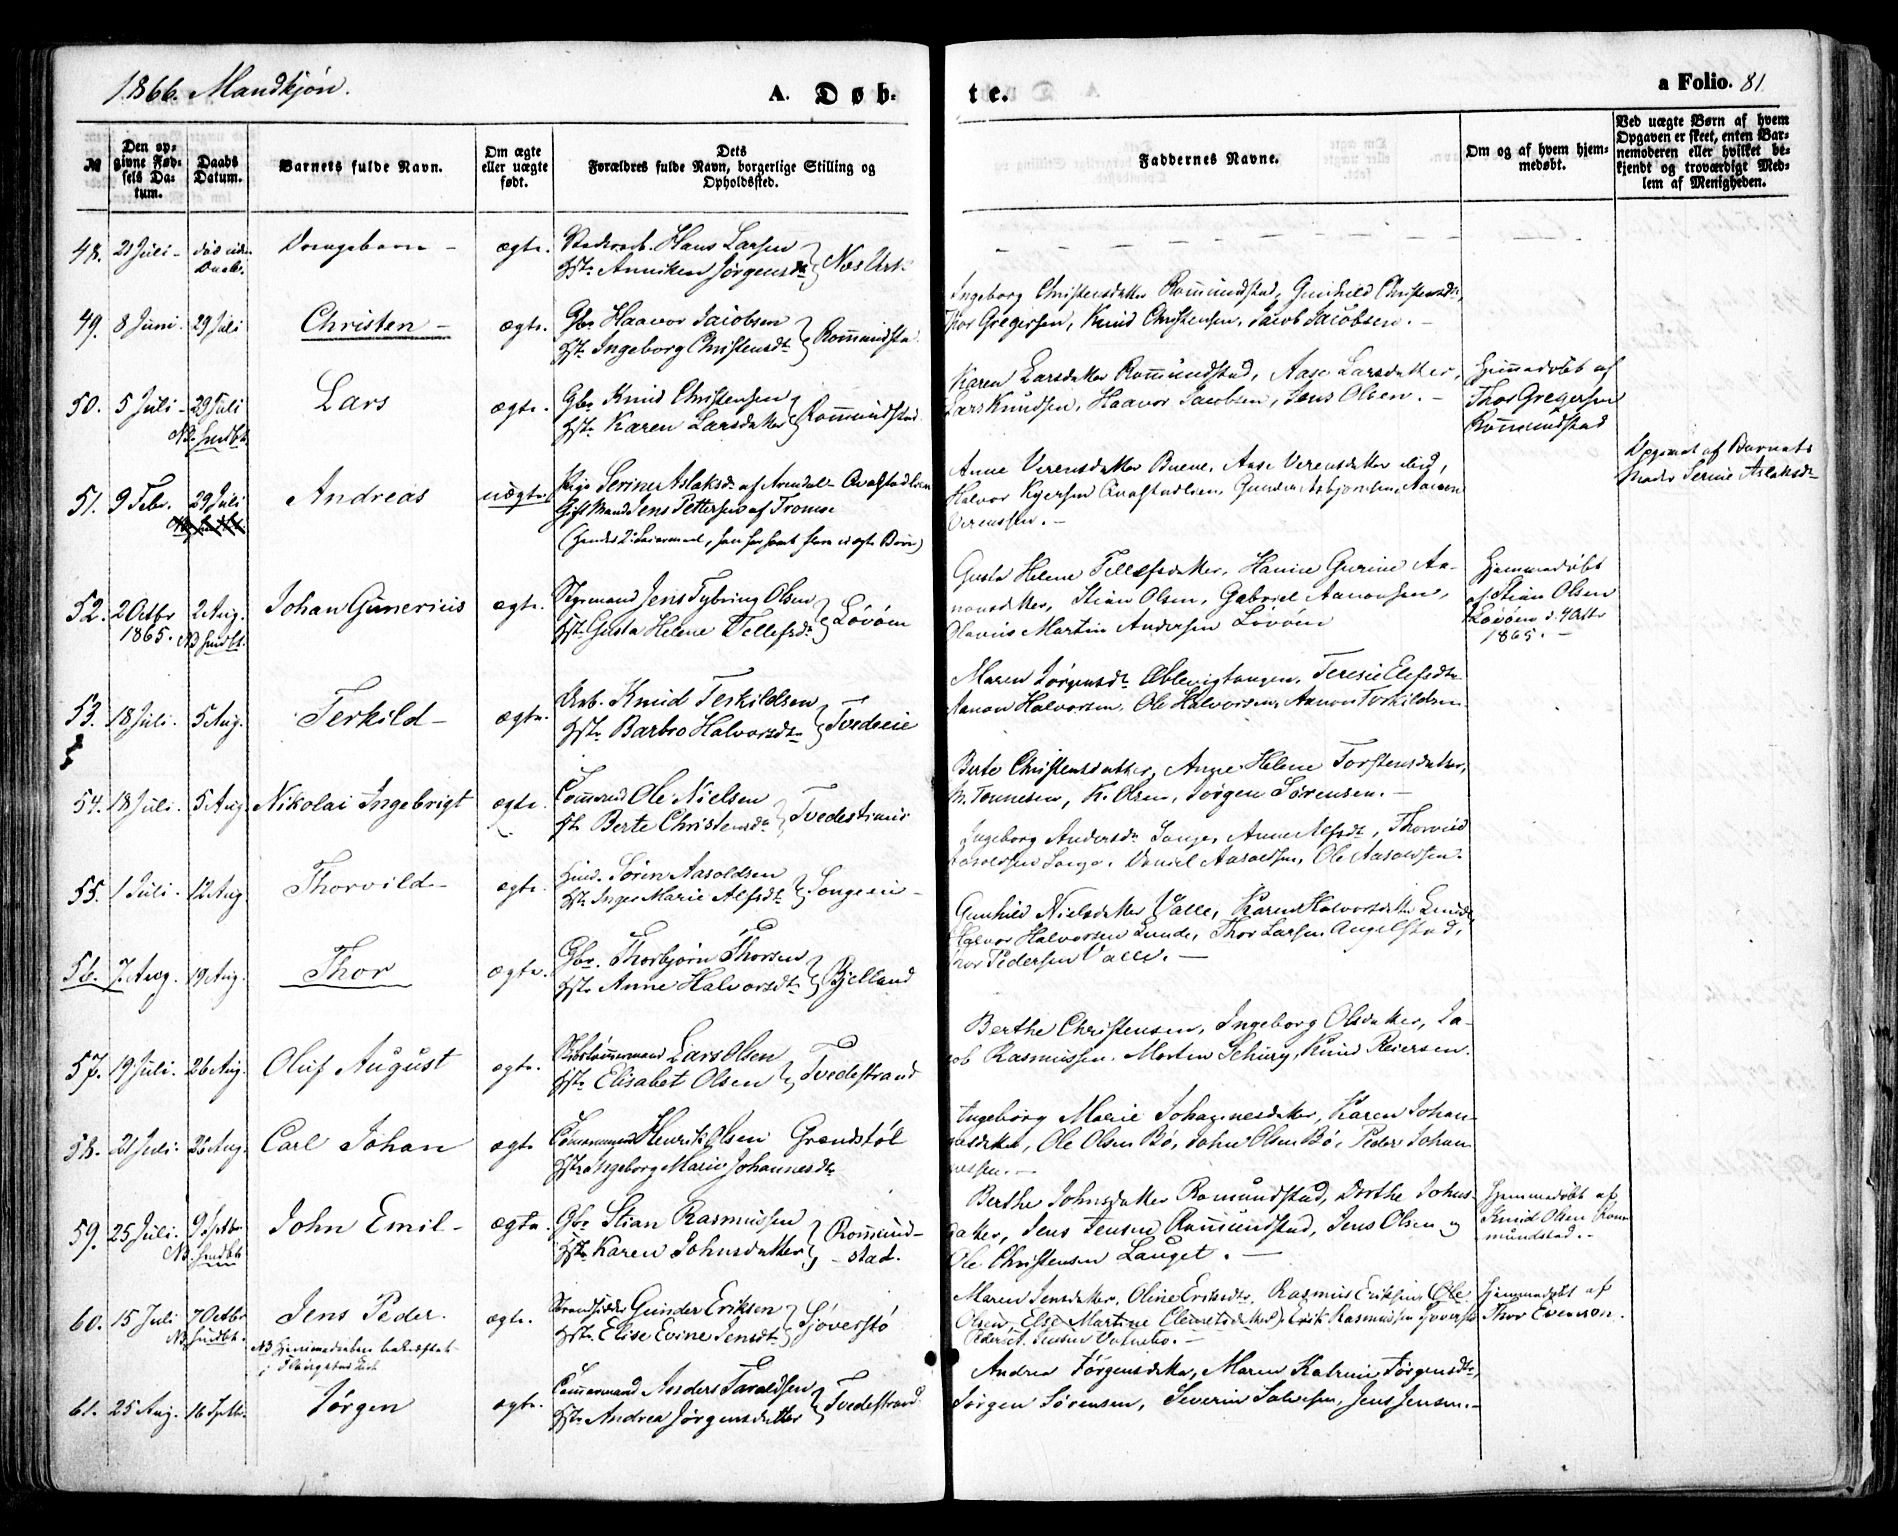 1866. Mandkjøn.
A. Døb-
te.
a Folio. 81
№
Den op-
givne Fød-
sels Da-
tum.
Daabs
Datum.
Barnets fulde Navn.
Om ægte
eller uægte
født.
Dets
Forældres fulde Navn, borgerlige Stilling og
Opholdssted.
Faddernes Navne.
Om og af hvem hjem-
medøbt.
Ved uægte Børn af hvem
Opgaven er skeet, enten Bar-
nemoderen eller hvilket be-
kjendt og troværdigt Med-
lem af Menigheden.
48. 21 Juli - død uden Drengebarn - ægte. Hans Larsen
Daab. Hst. Anniken Jørgensdt. Næs Verk
Ingeborg Christensdatter Rommundstad, Gunhild Christensdt,
49. 8 Juni. 29 Juli Christen - ægte. Gbr. Haavor Jacobsen
Hst. Ingeborg Christensdt. Rommundsta
Thor Gregersen, Knud Christensen, Jacob Jacobsen. -
50. 5 Juli - 29 Juli Lars ægte. Gbr. Knud Christensen
NB. Hmdbt Hst. Karen Larsdatter Rommundstad
Karen Larsdatter Rommundstad, Aase Larsdatter,
Lars Knudsen, Haavor Jacobsen, Jens Olsen. -
Hjemmedøbt af
Thor Gregersen
Rommundstad
51. 9 Febr. 29 Juli Andreas uægte Pige Serine Aslaksdt. af Arendal - Qvastadlien
Gift Mand Jens Pettersen af Tromsø
(Hendes 2. Leiermaal, han har havt flere uægte Børn)
Anne Verensdatter Buene, Aase Verensdatter ibid,
Halvor Kgersen Qvastadlien, Gunder Asbjørnsen, Aanon
Verenssen. -
Opgivet af Barnets
Moder Serine Aslaksdt
52. 2 Octbr 2 Aug. Johan Gunerius ægte. Styrmand Jens Tybring Olsen
1865. NB Hmdbt. Hst. Gusta Helene Tellefsdt. Løvøen
Gusta Helene Tellefsdatter, Hanne Gurine Aa-
nonsdatter, Stian Olsen, Gabriel Aanonsen,
Olavus Martin Andersen Løvøen
Hjemmedøbt
af Stian Olsen
Løvøen d. 4 Octbr
1865. -
53. 18 Juli. 5 Aug. Terkild - ægte. Arb. Knud Terkildsen
Hst. Barbro Halvorsdt. Tvedeeie
Maren Jørgensdt. Æblevigtangen, Teresie Elefsdt.
Aanon Halvorsen, Ole Halvorsen, Aanon Terkildsen
54. 18 Juli. 5 Aug Nikolai Ingebrigt ægte. Tømmermd Ole Nielsen
Hst. Berte Christensdt. Tvedestrand
Berte Christensdatter, Anne Helene Torstensdatter,
M. Tønnesen, K. Olsen, Jørgen Sørensen. -
55. 1 Juli. 12 Aug Thorvild - ægte. Huusmd. Søren Aasoldsen
Hst. Inger Marie Alfsdt. Songeeie -
Ingeborg Andersdt. Songe, Anne Alfsdt, Thorvild
Aasoldsen Songe, Daniel Aasoldsen, Ole Aasoldsen.
56. 7. Aug. 19 Aug. Thor ægte. Gbr. Thorbjørn Thorsen
Hst. Anne Halvorsdt. Bjelland
Gunhild Nielsdatter Valle, Karen Halvorsdatter Lunde,
Halvor Halvorsen Lunde, Thor Larsen Angelstad,
Thor Pedersen Valle. -
57. 19 Juli. 26 Aug. Oluf August ægte. Skibstømmermand Lars Olsen
Hst. Elisabet Olsen Tvedestrand
Berthe Christensen, Ingeborg Olsdatter, Ja-
cob Rasmussen, Morten Schury, Knud Reiersen.
58. 21 Juli. 26 Aug. Carl Johan ægte Tømmermand Henrik Olsen Grendstøl
Hst. Ingeborg Marie Johannesdt.
Ingeborg Marie Johannesdatter, Karen Johan-
nesdatter, Ole Olsen Bø, John Olsen Bø, Peder Johan
nessen. -
59. 25 Juli. 9 Sptbr John Emil - ægte. Gbr. Stian Rasmussen
NB. Hmdbt Hst. Karen Johnsdatter Rommund-
- stad.
Berthe Johnsdatter Romundstad, Dorthe Johns-
datter, Jens Jensen Rommundstad, Jens Olsen og
Ole Christensen Lauget. -
Hjemmedøbt af
Knud Olsen Rom-
mundstad. -
60. 15 Juli 7 Octbr Jens Peder. ægte. Strandsidder Gunder Eriksen
NB. Hmdbt. Hst. Elise Evine Jensdt. Sjøverstø
NB Hjemmedaaben bekræftet
i Flosta Kirke
Maren Jensdatter, Oline Eriksdt., Rasmus Eriksen, Ole
Olsen, Else Martine Clemetsdatter, Erik Rasmussen Sjøverstø
Hjemmedøbt af
Thor Evenson.
61. 25 Aug. 16 Sptbr. Jørgen ægte. Tømmermand Anders Taraldsen
Hst. Andrea Jørgensdatter Tvedestrand
Andrea Jørgensdatter, Maren Katrine Jørgensdt,
Jørgen Sørensen, Severin Salvesen, Jens Jensen. -